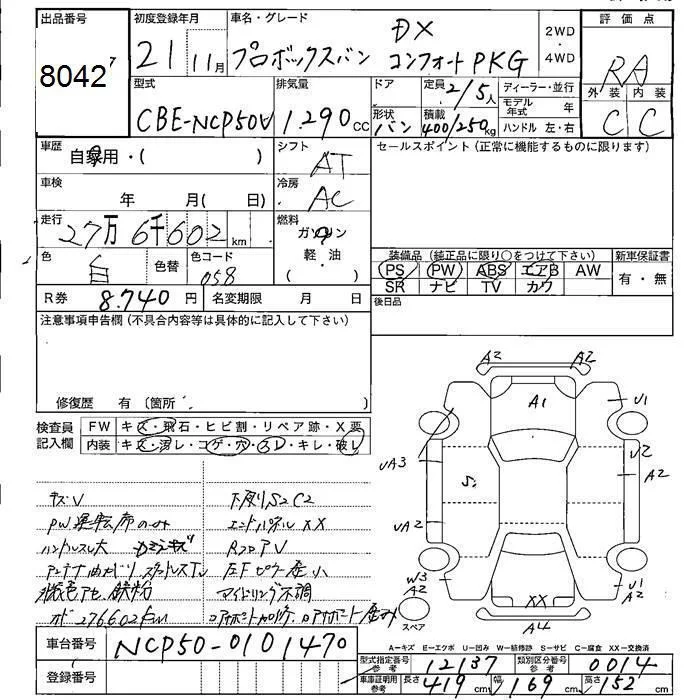 出品番号
8042 7
初度登録年月
21 11月
車名・グレード
プロボックスバン DX コンフォートPKG
2WD・4WD
評価点
RA
外装 内装
C C
型式
CBE-NCP50V
排気量
1.290cc
ドア
形状 バン
定員 2/5人
積載 400/250kg
ディーラー・並行
モデル年式 年
ハンドル 左・右
車歴
自家用・( )
シフト
AT
セールスポイント(正常に機能するものに限ります)
車検
年 月( 日)
冷房
AC
走行
27万6千602km
燃料
ガソリン
軽・油
( )
色
白
色替
色コード
058
装備品(純正品に限り○をつけて下さい)
新車保証書
PS PW ABS エアB AW
SR ナビ TV カワ
有・無
R券 8.740円
名変期限 月 日
後日品
注意事項申告欄(不具合内容等は具体的に記入して下さい)
修復歴 有(箇所
検査員記入欄
FW キズ・飛石・ヒビ割・リペア跡・X要
内装 キズ・汚レ・コゲ・穴・スレ・キレ・破レ
キズV
下廻りS2C2
PW運転席のみ
エンドパネルXX
ハンドルスレ大
アイドリング不調
メーター 276602km
A2 A2
A1
U1
UA3
U2
A2
S
UA2
W3
A2
U1
A2
XX
A4
スペア
車台番号 NCP50-0101470
登録番号
A=キズ E=エクボ U=凹み W=補修跡 S=サビ C=腐食 XX=交換済
型式指定番号参考 12137
類別区分番号参考 0014
車庫証明用参考 長さ 419cm 幅 169cm 高さ 152cm